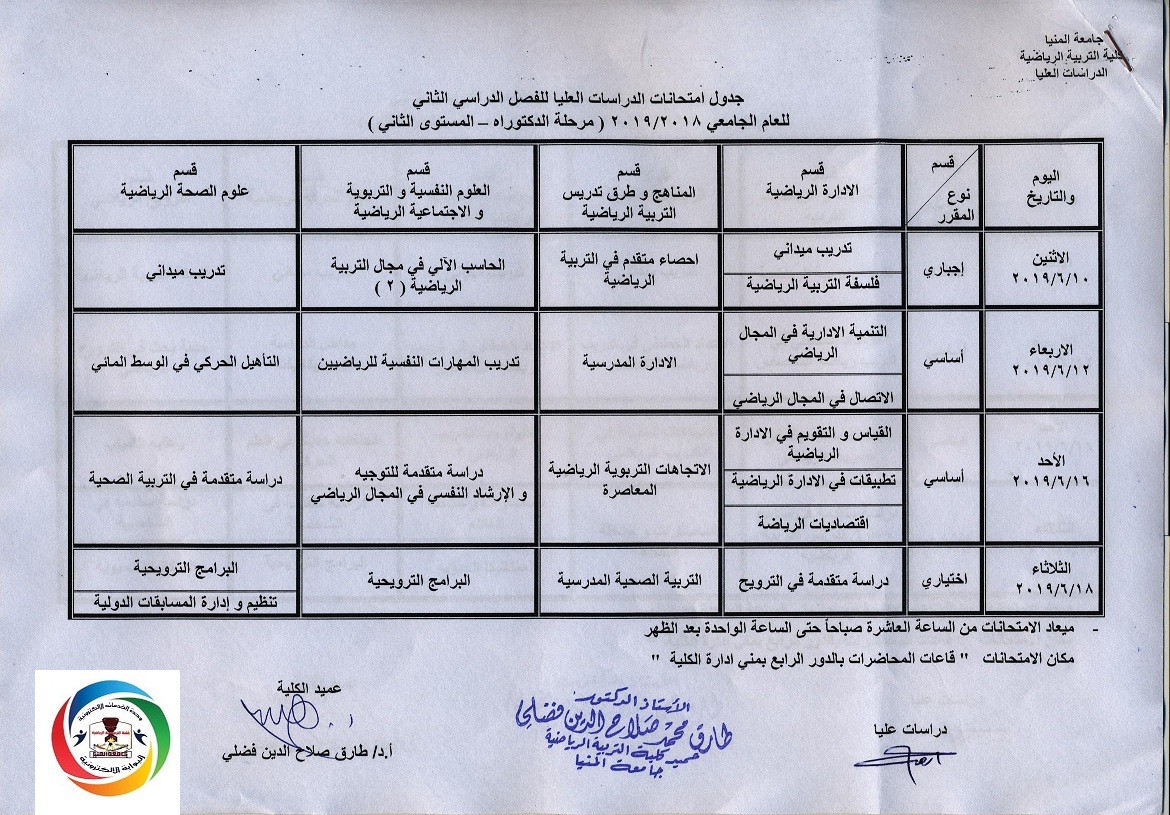 جامعة المنيا
كلية التربية الرياضية
الدراسات العليا
جدول امتحانات الدراسات العليا للفصل الدراسي الثاني
للعام الجامعي ٢٠١٩/٢٠١٨ ( مرحلة الدكتوراه – المستوى الثاني )
اليوم
والتاريخ
قسم
نوع
المقرر
قسم
الادارة الرياضية
قسم
المناهج و طرق تدريس
التربية الرياضية
قسم
العلوم النفسية و التربوية
و الاجتماعية الرياضية
قسم
علوم الصحة الرياضية
الاثنين
٢٠١٩/٦/١٠
إجباري
تدريب ميداني
فلسفة التربية الرياضية
احصاء متقدم في التربية
الرياضية
الحاسب الآلي في مجال التربية
الرياضية ( ٢ )
تدريب ميداني
الاربعاء
٢٠١٩/٦/١٢
أساسي
التنمية الادارية في المجال
الرياضي
الاتصال في المجال الرياضي
الادارة المدرسية
تدريب المهارات النفسية للرياضيين
التأهيل الحركي في الوسط المائي
الأحد
٢٠١٩/٦/١٦
أساسي
القياس و التقويم في الادارة
الرياضية
تطبيقات في الادارة الرياضية
اقتصاديات الرياضة
الاتجاهات التربوية الرياضية
المعاصرة
دراسة متقدمة للتوجيه
و الإرشاد النفسي في المجال الرياضي
دراسة متقدمة في التربية الصحية
الثلاثاء
٢٠١٩/٦/١٨
اختياري
دراسة متقدمة في الترويح
التربية الصحية المدرسية
البرامج الترويحية
البرامج الترويحية
تنظيم و إدارة المسابقات الدولية
- ميعاد الامتحانات من الساعة العاشرة صباحاً حتى الساعة الواحدة بعد الظهر
مكان الامتحانات " قاعات المحاضرات بالدور الرابع بمني ادارة الكلية "
دراسات عليا
الأستاذ الدكتور
طارق محمد صلاح الدين فضلي
عميد كلية التربية الرياضية
جامعة المنيا
عميد الكلية
أ.د/ طارق صلاح الدين فضلي
وحدة الخدمات الإلكترونية
جامعة المنيا
البوابة الإلكترونية